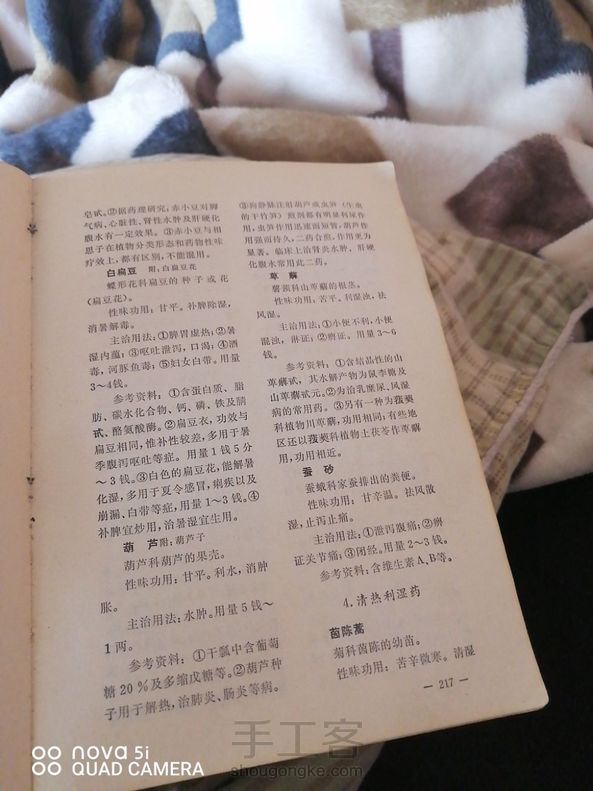 皂甙。②据药理研究，赤小豆对脚
气病、心脏性、肾性水肿及肝硬化
腹水有一定效果。③赤小豆与相
思子在植物分类形态和药物性味
疗效上，都有区别，不能混用。
白扁豆 附：白扁豆花
蝶形花科扁豆的种子或花
（扁豆花）。
性味功用：甘平。补脾除湿，
消暑解毒。
主治用法：①脾胃虚热；②暑
湿内蕴；③呕吐泄泻，口渴；④酒
毒，河豚鱼毒；⑤妇女白带。用量
3～4钱。
参考资料：①含蛋白质、脂
肪、碳水化合物、钙、磷、铁及腈
甙、酪氨酸酶。②扁豆衣，功效与
扁豆相同，惟补性较差，多用于暑
季腹泻呕吐等症。用量1钱5分
～3钱。③白色的扁豆花，能解暑
化湿，多用于夏令感冒，痢疾以及
崩漏、白带等症，用量1～3钱。④
补脾宜炒用，治暑湿宜生用。
葫芦 附：葫芦子
葫芦科葫芦的果壳。
性味功用：甘平。利水，消肿
胀。
主治用法：水肿。用量5钱～
1两。
参考资料：①干瓢中含葡萄
糖20%及多缩戊糖等。②葫芦种
子用于解热，治肺炎、肠炎等病。
③狗静脉注射葫芦或虫笋（生虫
的干竹笋）煎剂都有明显利尿作
用，虫笋作用迅速而短暂，葫芦作
用强而持久，二药合煎，作用更为
显著。临床上治肾炎水肿、肝硬
化腹水常用此二药。
萆薢
薯蓣科山萆薢的根茎。
性味功用：苦平。利湿浊，祛
风湿。
主治用法：①小便不利，小便
混浊，淋证；②痹证。用量3～6
钱。
参考资料：①含结晶性的山
萆薢甙，其水解产物为鼠李糖及
山萆薢甙元。②为治乳糜尿、风湿
病的常用药。③另有一种为菝葜
科植物川萆薢，功用相同；有些地
区还以菝葜科植物土茯苓作萆薢
用，功用相近。
蚕砂
蚕蛾科家蚕排出的粪便。
性味功用：甘辛温。祛风散
湿，止泻止痛。
主治用法：①泄泻腹痛；②痹
证关节痛；③闭经。用量2～3钱。
参考资料：含维生素A、B等。
4.清热利湿药
茵陈蒿
菊科茵陈的幼苗。
性味功用：苦辛微寒。清湿
— 217 —
手工客
shougongke.com
nova 5i
QUAD CAMERA